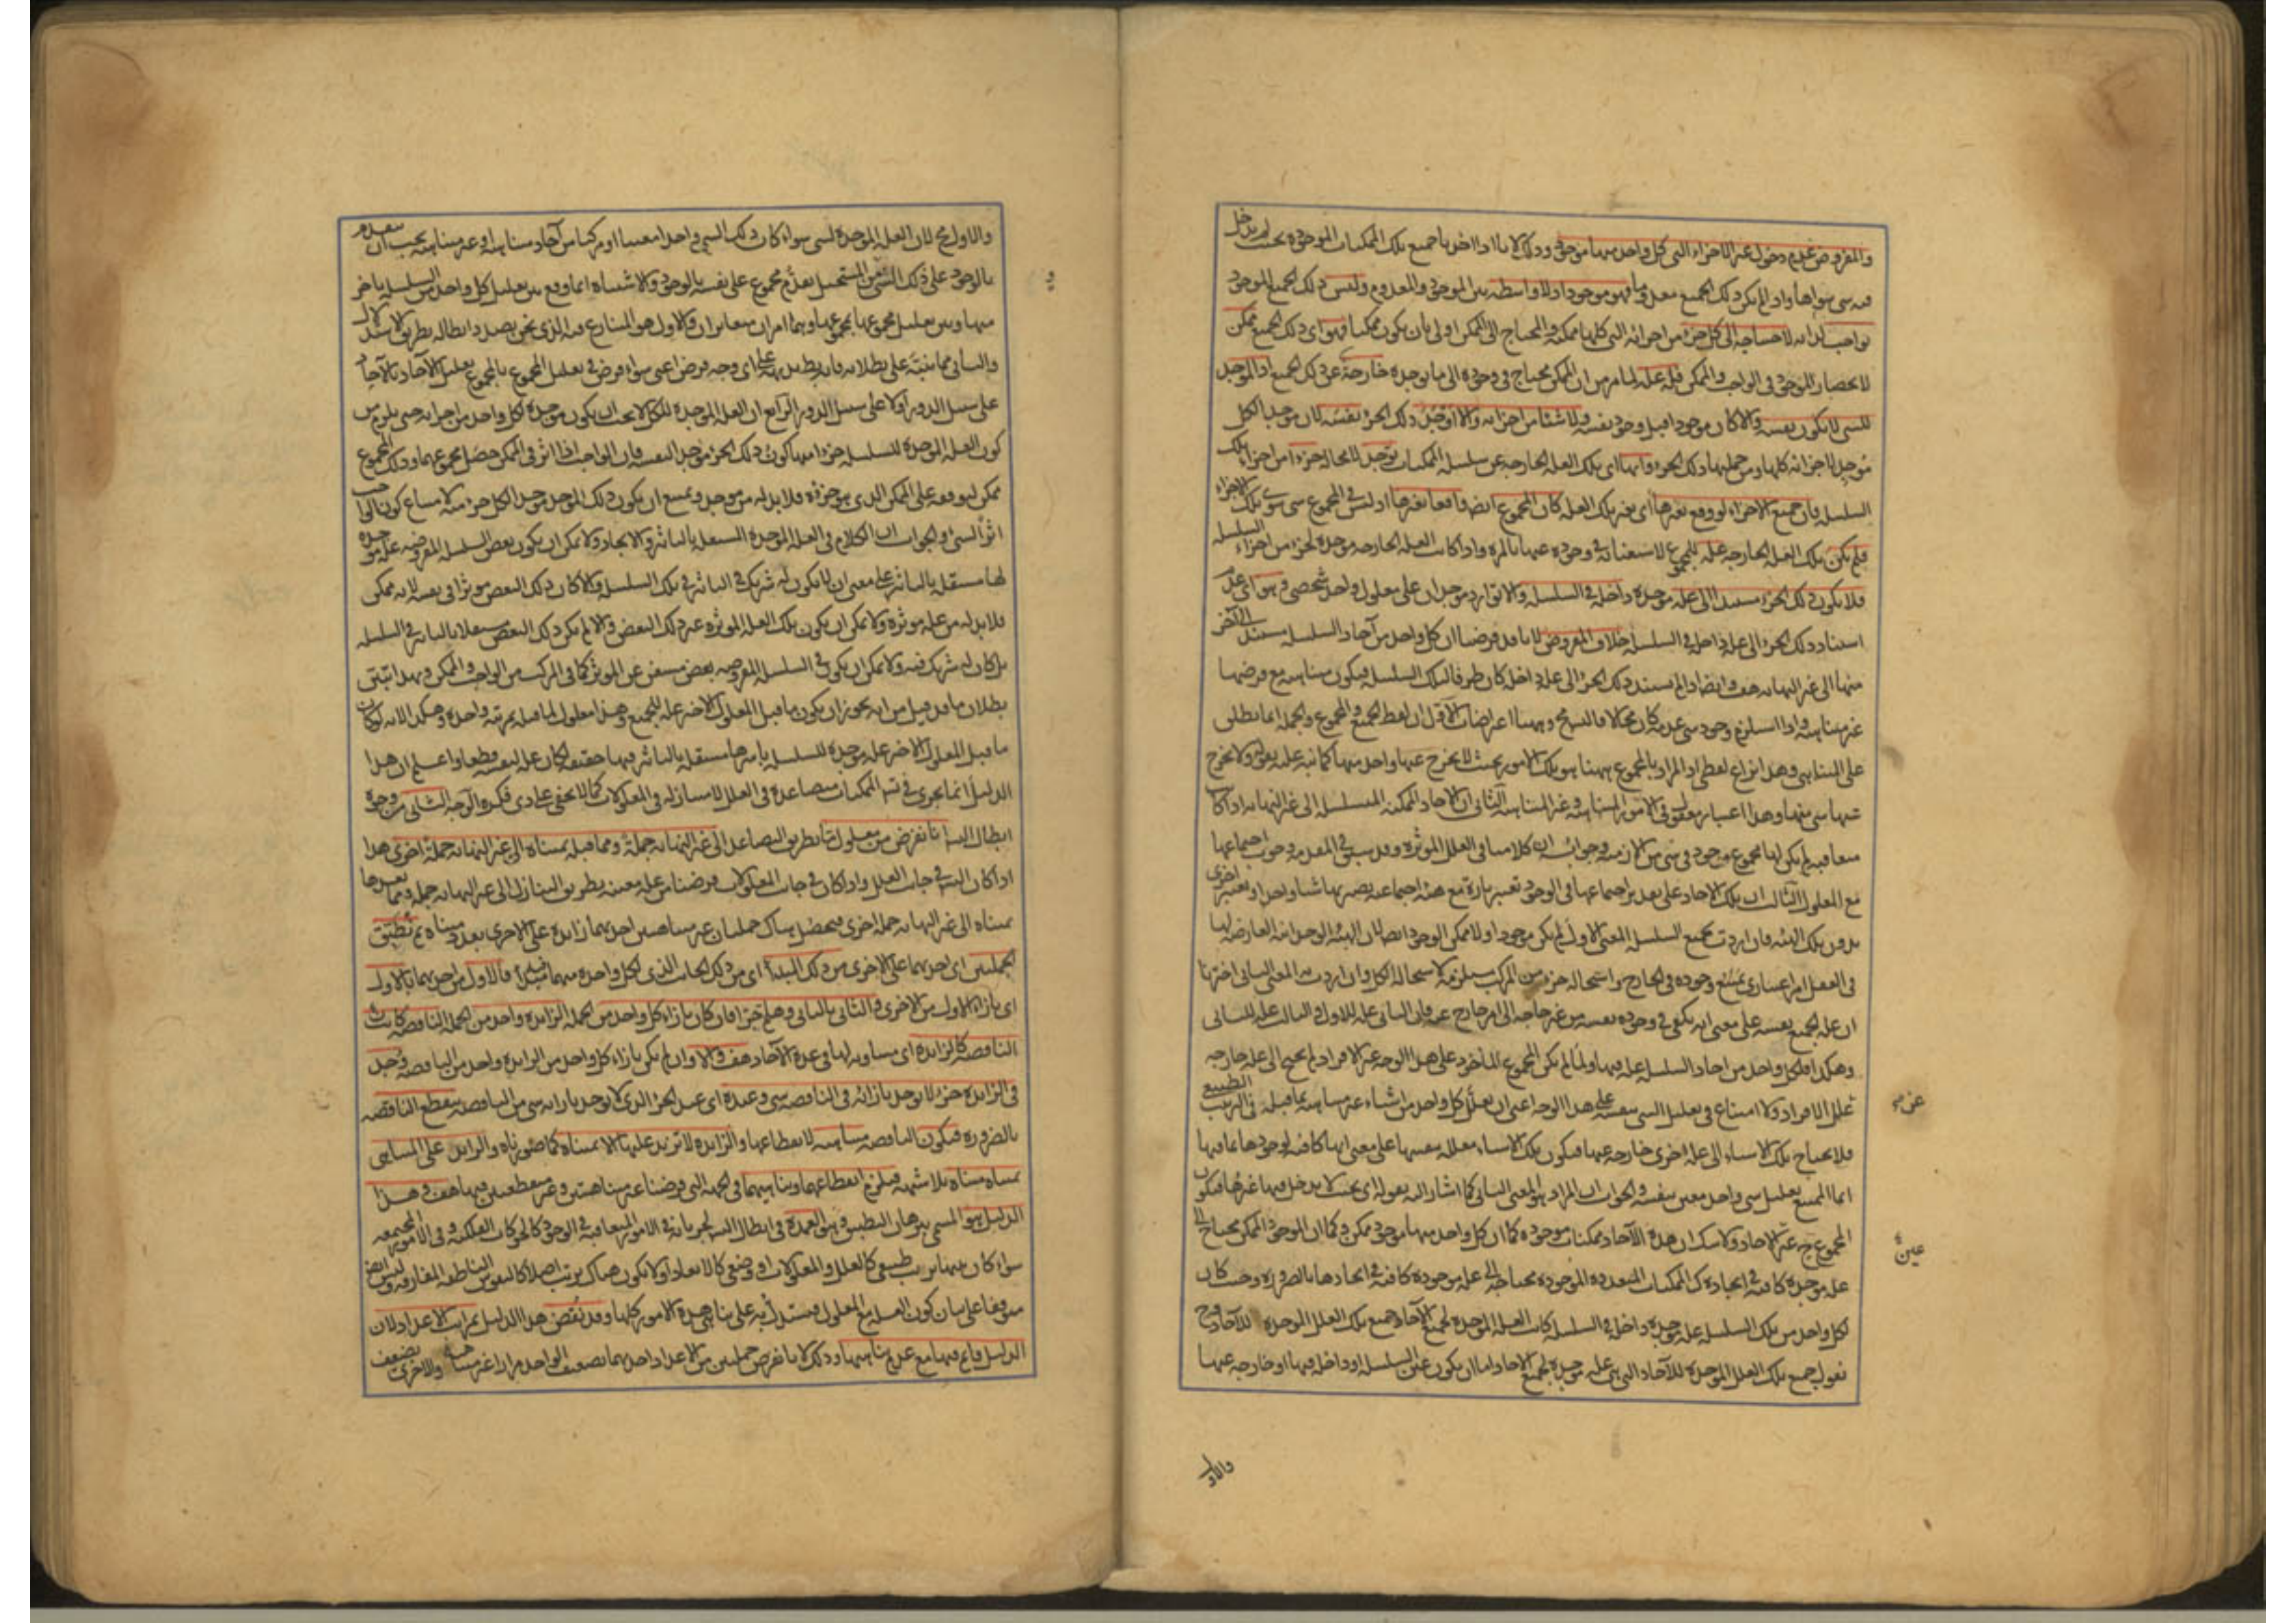 والمفروض عدم دخول غير الاجزاء التي كل واحد منها موجود وذلك لانا اذا اخذنا جميع تلك الممكنات الموجودة بحيث لم يدخل
فيه شئ سواها واذا لم يكن ذلك الجميع معدوما فهو موجود اذ لا واسطة بين الموجود والمعدوم وليس ذلك الجميع الموجود
بواجب لذاته لاحتياجه الى كل جزء من اجزائه التي كلها ممكنة والمحتاج الى الممكن اولى بان يكون ممكنا فهو اى ذلك الجميع ممكن
لانحصار الموجود في الواجب والممكن فله علة لما مر من ان الممكن محتاج في وجوده الى ما يوجده خارجة عن ذلك الجميع اذ الموجد
للشئ لا يكون نفسه والا كان موجودا قبل وجود نفسه ولا شيئا من اجزائه والا اوجد ذلك الجزء نفسه لان موجد الكل
موجد لاجزائه كلها ومن جملتها ذلك الجزء وانها اى تلك العلة الخارجة عن سلسلة الممكنات توجد لا محالة جزءا من اجزاء تلك
السلسلة فان جميع الاجزاء لو وقع بغيرها اى بغير تلك العلة كان المجموع ايضا واقعا بغيرها اذ ليس في المجموع شئ سوى تلك الاجزاء
فلم يكن تلك العلة الخارجة علة للمجموع لاستغنائه في وجوده عنها بالمرة واذا كانت العلة الخارجة موجدة لجزء من اجزاء السلسلة
فلا يكون ذلك الجزء مستندا الى علة موجدة داخلة في السلسلة والا توارد موجدان على معلول واحد شخصي وهو اى عدم
استناد ذلك الجزء الى علة داخلة في السلسلة خلاف المفروض لانا قد فرضنا ان كل واحد من آحاد السلسلة مستند الى آخر
منها الى غير النهاية هف وايضا اذا لم يستند ذلك الجزء الى علة داخلة كان طرفا لتلك السلسلة فيكون متناهية مع فرضها
غير متناهية واذا استلزم وجود شئ عدمه كان محالا فالتسلسل مح وههنا اعتراضات الاول ان لفظ الجميع والمجموع والجملة انما يطلق
على المتناهي وهذا نزاع لفظي اذ المراد بالمجموع ههنا هو تلك الامور بحيث لا يخرج عنها واحد منها كما نبه عليه بقوله ولا يخرج
عنها شئ منها وهذا اعتبار معقول في الامور المتناهية وغير المتناهية الثاني ان الآحاد الممكنة المتسلسلة الى غير النهاية اذا كانت
متعاقبة لم يكن لها مجموع موجود في شئ من الازمنة وجوابه ان كلامنا في العلل المؤثرة وقد سبق في المقدمة وجوب اجتماعها
مع المعلول الثالث ان تلك الآحاد على تقدير اجتماعها في الوجود تعتبر تارة مع هيئة اجتماعية يصير بها شيئا واحدا وتعتبر اخرى
بدون تلك الهيئة فان اردت بجميع السلسلة المعنى الاول لم يكن موجودا ولا ممكن الوجود ايضا لان الهيئة الوحدانية العارضة لها
في العقل امر اعتباري يمتنع وجوده في الخارج واستحالة جزء من المركب مستلزمة لاستحالة الكل وان اردت به المعنى الثاني اخترنا
ان علة الجميع نفسه على معنى انه يكفي في وجوده نفسه من غير حاجة الى امر خارج عنه فان الثاني علة للاول والثالث علة للثاني
وهكذا فلكل واحد من آحاد السلسلة علة فيها ولما لم يكن المجموع المأخوذ على هذا الوجه غير الافراد لم يحتج الى علة خارجة
علل الافراد ولا امتناع في تعليل الشئ بنفسه على هذا الوجه اعنى ان يعلل كل واحد من اشياء غير متناهية بما قبله في الترتيب الطبيعي
فلا يحتاج تلك الاشياء الى علة اخرى خارجة عنها فيكون تلك الاشياء معللة بنفسها على معنى انها كافية لوجودها بما فيها
انما الممتنع تعليل شئ واحد معين بنفسه والجواب ان المراد هو المعنى الثاني كما اشار اليه بقوله اى بحيث لا يدخل فيها غيرها فيكون
المجموع ح عين الآحاد ولا شك ان هذه الآحاد ممكنات موجودة كما ان كل واحد منها موجود ممكن وكما ان الموجود الممكن محتاج الى
علة موجدة كافية في ايجاده كذلك الممكنات المتعددة الموجودة محتاجة الى علة موجودة كافية في ايجادها بالضرورة وحيث كان
لكل واحد من تلك السلسلة علة موجدة داخلة في السلسلة كانت العلة الموجدة لجميع الآحاد جميع تلك العلل الموجدة للآحاد وح
نقول جميع تلك العلل الموجدة للآحاد التي هي علة موجدة لجميع الآحاد اما ان يكون عين السلسلة او داخلة فيها او خارجة عنها
عين
والاول
والاول مح لان العلة الموجدة لشئ سواء كان ذلك الشئ واحدا معينا او مركبا من آحاد متناهية او غير متناهية يجب ان يتقدم
بالوجود على ذلك الشئ ومن المستحيل تقدم مجموع على نفسه بالوجود والاشتباه انما وقع بين تعليل كل واحد من السلسلة بآخر
منها وبين تعليل مجموعها بمجموعها وهما امران متغايران والاول هو المتنازع فيه الذي نحن بصدد ابطاله بطريق الاستدلال
والثاني مما ينبه على بطلانه فانه بط بديهة على اى وجه فرض اعنى سواء فرض في تعليل المجموع بالمجموع تعليل الآحاد بالآحاد
على سبيل الدور اولا على سبيل الدور الرابع ان العلة الموجدة للكل لا يجب ان يكون موجدة لكل واحد من اجزائه حتى يلزم من
كون العلة الموجدة للسلسلة جزءا منها كون ذلك الجزء موجدا لنفسه فان الواجب اذا اثر في الممكن حصل مجموعهما وذلك المجموع
ممكن لتوقفه على الممكن الذي هو جزؤه فلا بد له من موجد ويمتنع ان يكون ذلك الموجد موجدا لكل جزء منه لامتناع كون الواجب
اثرا لشئ والجواب ان الكلام في العلة الموجدة المستقلة بالتأثير والايجاد ولا يمكن ان يكون بعض السلسلة المفروضة علة موجدة
لها مستقلة بالتأثير على معنى ان لا يكون له شريك في التأثير في تلك السلسلة والا كان ذلك البعض مؤثرا في نفسه لانه ممكن
فلا بد له من علة مؤثرة ولا يمكن ان يكون تلك العلة المؤثرة غير ذلك البعض والا لم يكن ذلك البعض مستقلا بالتأثير في السلسلة
بل كان له شريك فيه ولا يمكن ان يكون في السلسلة المفروضة بعض مستغن عن المؤثر كما في المركب من الواجب والممكن وبهذا يتبين
بطلان ما قد قيل من انه يجوز ان يكون ما قبل المعلول الاخير علة للجميع وهذا معلول لما قبله بمرتبة واحدة وهكذا لانه لو كان
ما قبل المعلول الاخير علة موجدة للسلسلة باسرها مستقلة بالتأثير فيها حقيقة لكان علة لنفسه قطعا واعلم ان هذا
الدليل انما يجرى في تسلسل الممكنات متصاعدة في العلل لا متنازلة في المعلولات كما لا يخفى على ذي فكرة الوجه الثاني من وجوه
ابطال التسلسل انا نفرض من معلول ما بطريق التصاعد الى غير النهاية جملة ومما قبله بمتناه الى غير النهاية جملة اخرى هذا
اذا كان التسلسل في جانب العلل واذا كان في جانب المعلولات فرضنا من علة معينة بطريق التنازل الى غير النهاية جملة ومما بعدها
بمتناه الى غير النهاية جملة اخرى فيحصل هناك جملتان غير متناهيتين احديهما زائدة على الاخرى بعدد متناه ثم نطبق
الجملتين اى احديهما على الاخرى من ذلك المبدأ اى من ذلك الجانب الذي لكل واحدة منهما مبدأ فالاول من احديهما بالاول
اى بازاء الاول من الاخرى والثاني بالثاني وهلم جرا فان كان بازاء كل واحد من الجملة الزائدة واحد من الجملة الناقصة كانت
الناقصة كالزائدة اى مساوية لها في عدة الآحاد هف والا وان لم يكن بازاء كل واحد من الزائدة واحد من الناقصة وجد
في الزائدة جزء لا يوجد بازائه في الناقصة شئ وعنده اى عند الجزء الذي لا يوجد بازائه شئ من الناقصة ينقطع الناقصة
بالضرورة فيكون الناقصة متناهية لانقطاعها والزائدة لا تزيد عليها الا بمتناه كما صورناه والزائد على المتناهي
بمتناه متناه بلا شبهة فيلزم انقطاعهما وتناهيهما في الجهة التي فرضنا غير متناهيتين وغير منقطعتين فيها هف وهذا
الدليل هو المسمى ببرهان التطبيق وهو العمدة في ابطال التسلسل لجريانه في الامور المتعاقبة في الوجود كالحركات الفلكية وفي الامور المجتمعة
سواء كان بينها ترتب طبيعي كالعلل والمعلولات او وضعي كالابعاد او لا يكون هناك ترتب اصلا كالنفوس الناطقة المفارقة وليس ايضا
متوقفا على بيان كون العلة مع المعلول فيستدل به على تناهي هذه الامور كلها وقد نقض هذا الدليل بمراتب الاعداد لان
الدليل قائم فيها مع عدم تناهيها وذلك لانا نفرض جملتين من الاعداد احديهما تضعيف الواحد مرارا غير متناهية والاخرى تضعيف